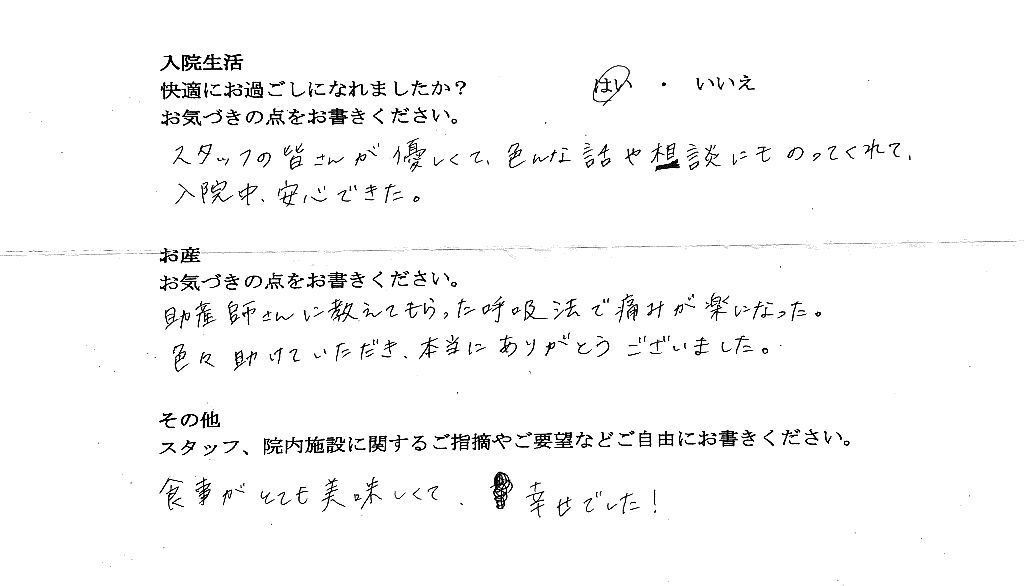 入院生活
快適にお過ごしになれましたか? はい ・ いいえ
お気づきの点をお書きください。
スタッフの皆さんが優しくて、色んな話や相談にものってくれて、
入院中、安心できた。
お産
お気づきの点をお書きください。
助産師さんに教えてもらった呼吸法で痛みが楽になった。
色々助けていただき、本当にありがとうございました。
その他
スタッフ、院内施設に関するご指摘やご要望などご自由にお書きください。
食事がとても美味しくて、幸せでした!